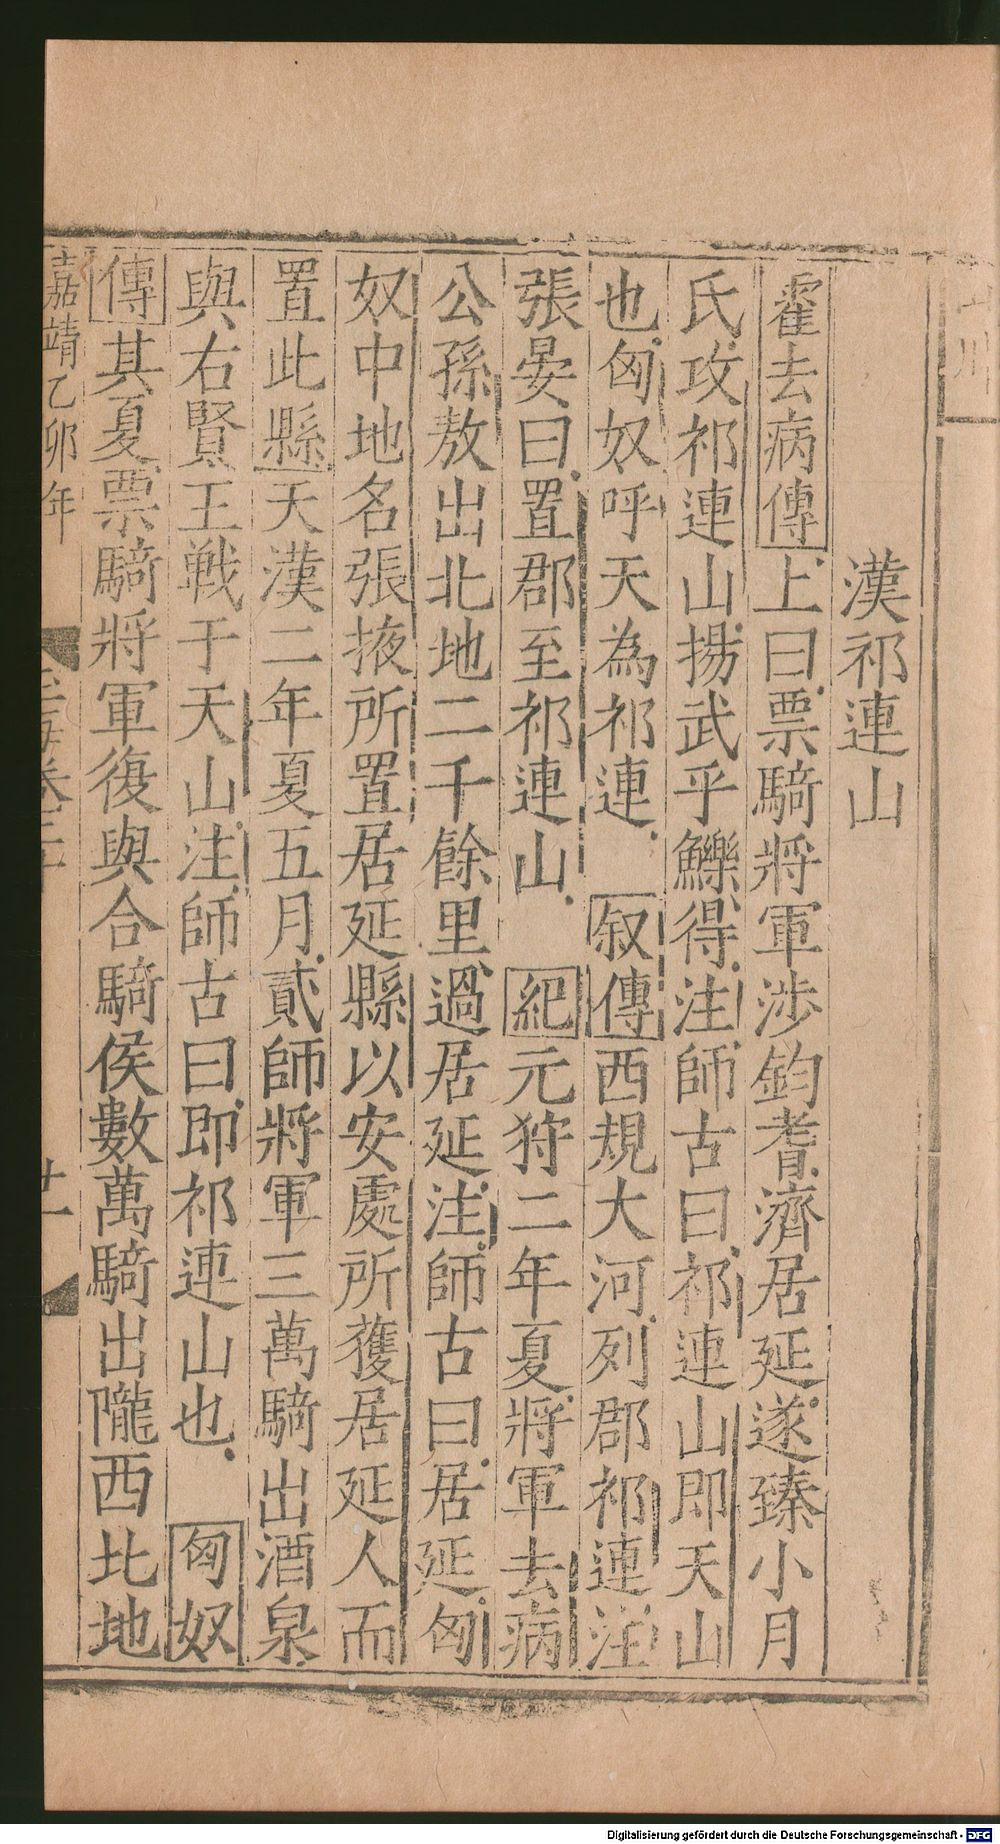 山川
漢祁連山
霍去病傳上曰票騎將軍涉鈞耆濟居延遂臻小月
氏攻祁連山揚武乎鱳得注師古曰祁連山即天山
也匈奴呼天為祁連叙傳西規大河列郡祁連注
張晏曰置郡至祁連山紀元狩二年夏將軍去病
公孫敖出北地二千餘里過居延注師古曰居延匈
奴中地名張掖所置居延縣以安處所獲居延人而
置此縣天漢二年夏五月貳師將軍三萬騎出酒泉
與右賢王戰于天山注師古曰即祁連山也匈奴
傳其夏票騎將軍復與合騎侯數萬騎出隴西北地
嘉靖乙卯年
玉海卷二十
廿一
Digitalisierung gefördert durch die Deutsche Forschungsgemeinschaft - DFG